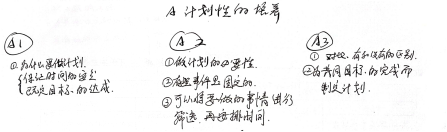 A 计划性的培养
A1
①为什么要做计划.
保证时间的固定
既定目标的达成.
A2
①做计划的必要性
②有些事件是固定的.
③可以将要做的事情进行
筛选,再安排时间.
A3
①对比、有和没有的区别.
②为共同目标的完成而
制定计划.